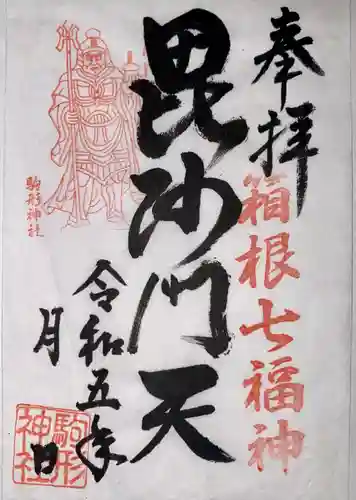 奉拝
箱根七福神
毘沙門天
令和五年
月
日
駒形神社
駒形
神社